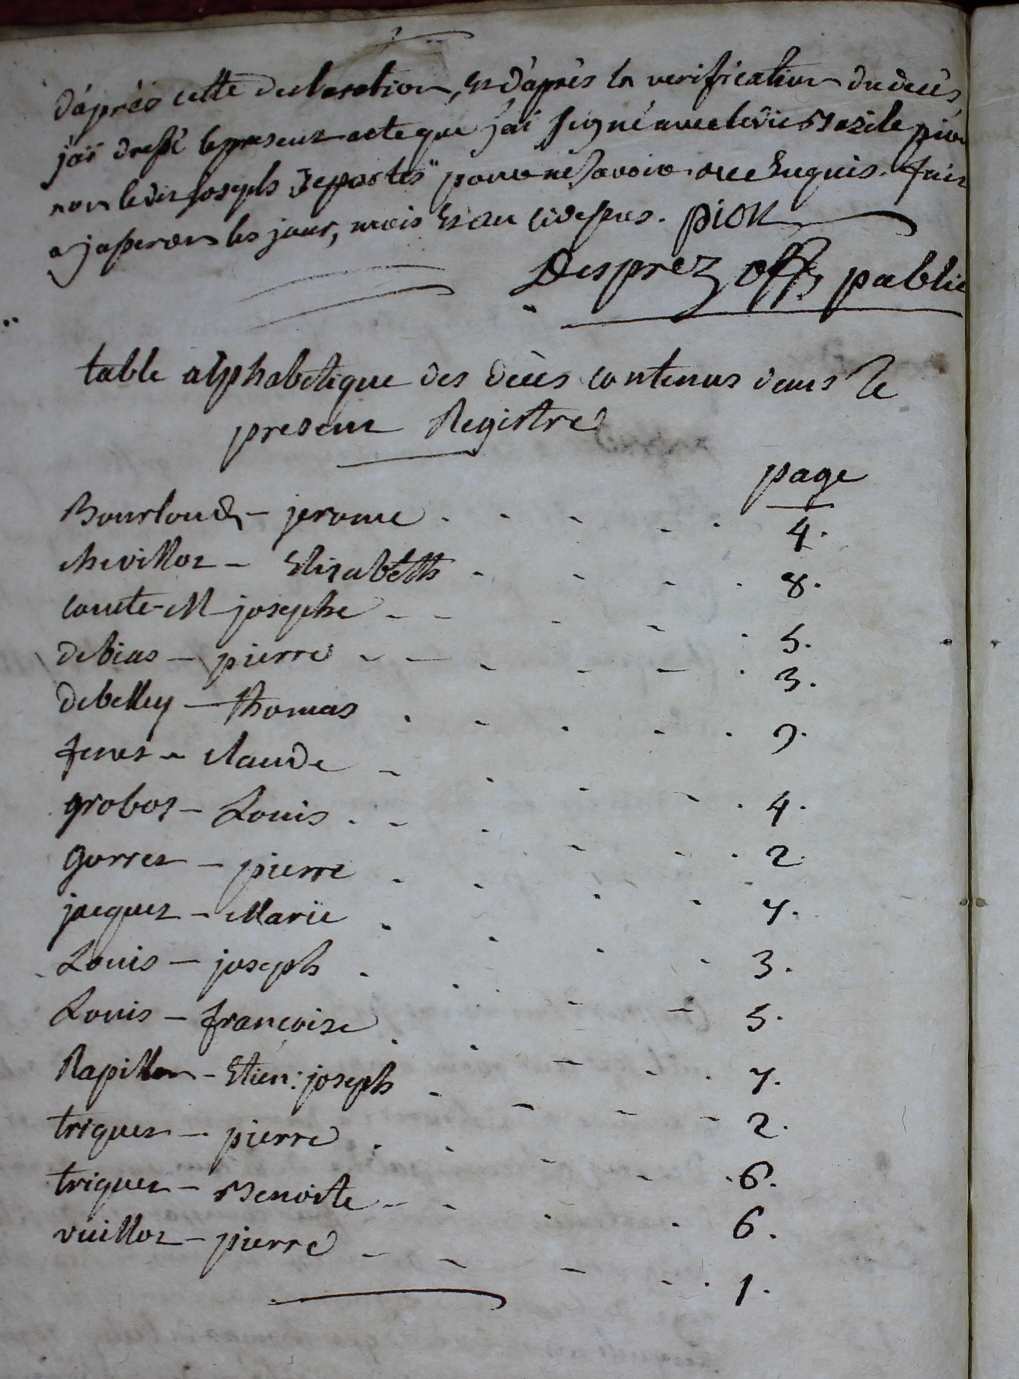 d'après cette declaration, et d'après la verification du decès
j'ai dressé le present acte que j'ai signé avec ledit Bazile pion
non ledit joseph pour ne savoir, de ce Enquis. fait
a les jour, mois Et an cidessus. pion
Desprez off. public
table alphabetique des decès contenus dans le
present Registre
page
Bourloud - jerome 4.
chevillot - Elisabeth 8.
comte - M josephe 5.
debias - pierre 3.
debelley - thomas 7.
feret - claude 4.
grobot - Louis 2.
gurret - pierre 7.
jacquet - Marie 3.
Louis - joseph 5.
Louis - françoise 7.
Rapillon - Etien: joseph 2.
triquet - pierre 6.
triquet - Benoite 6.
vuillot - pierre 1.